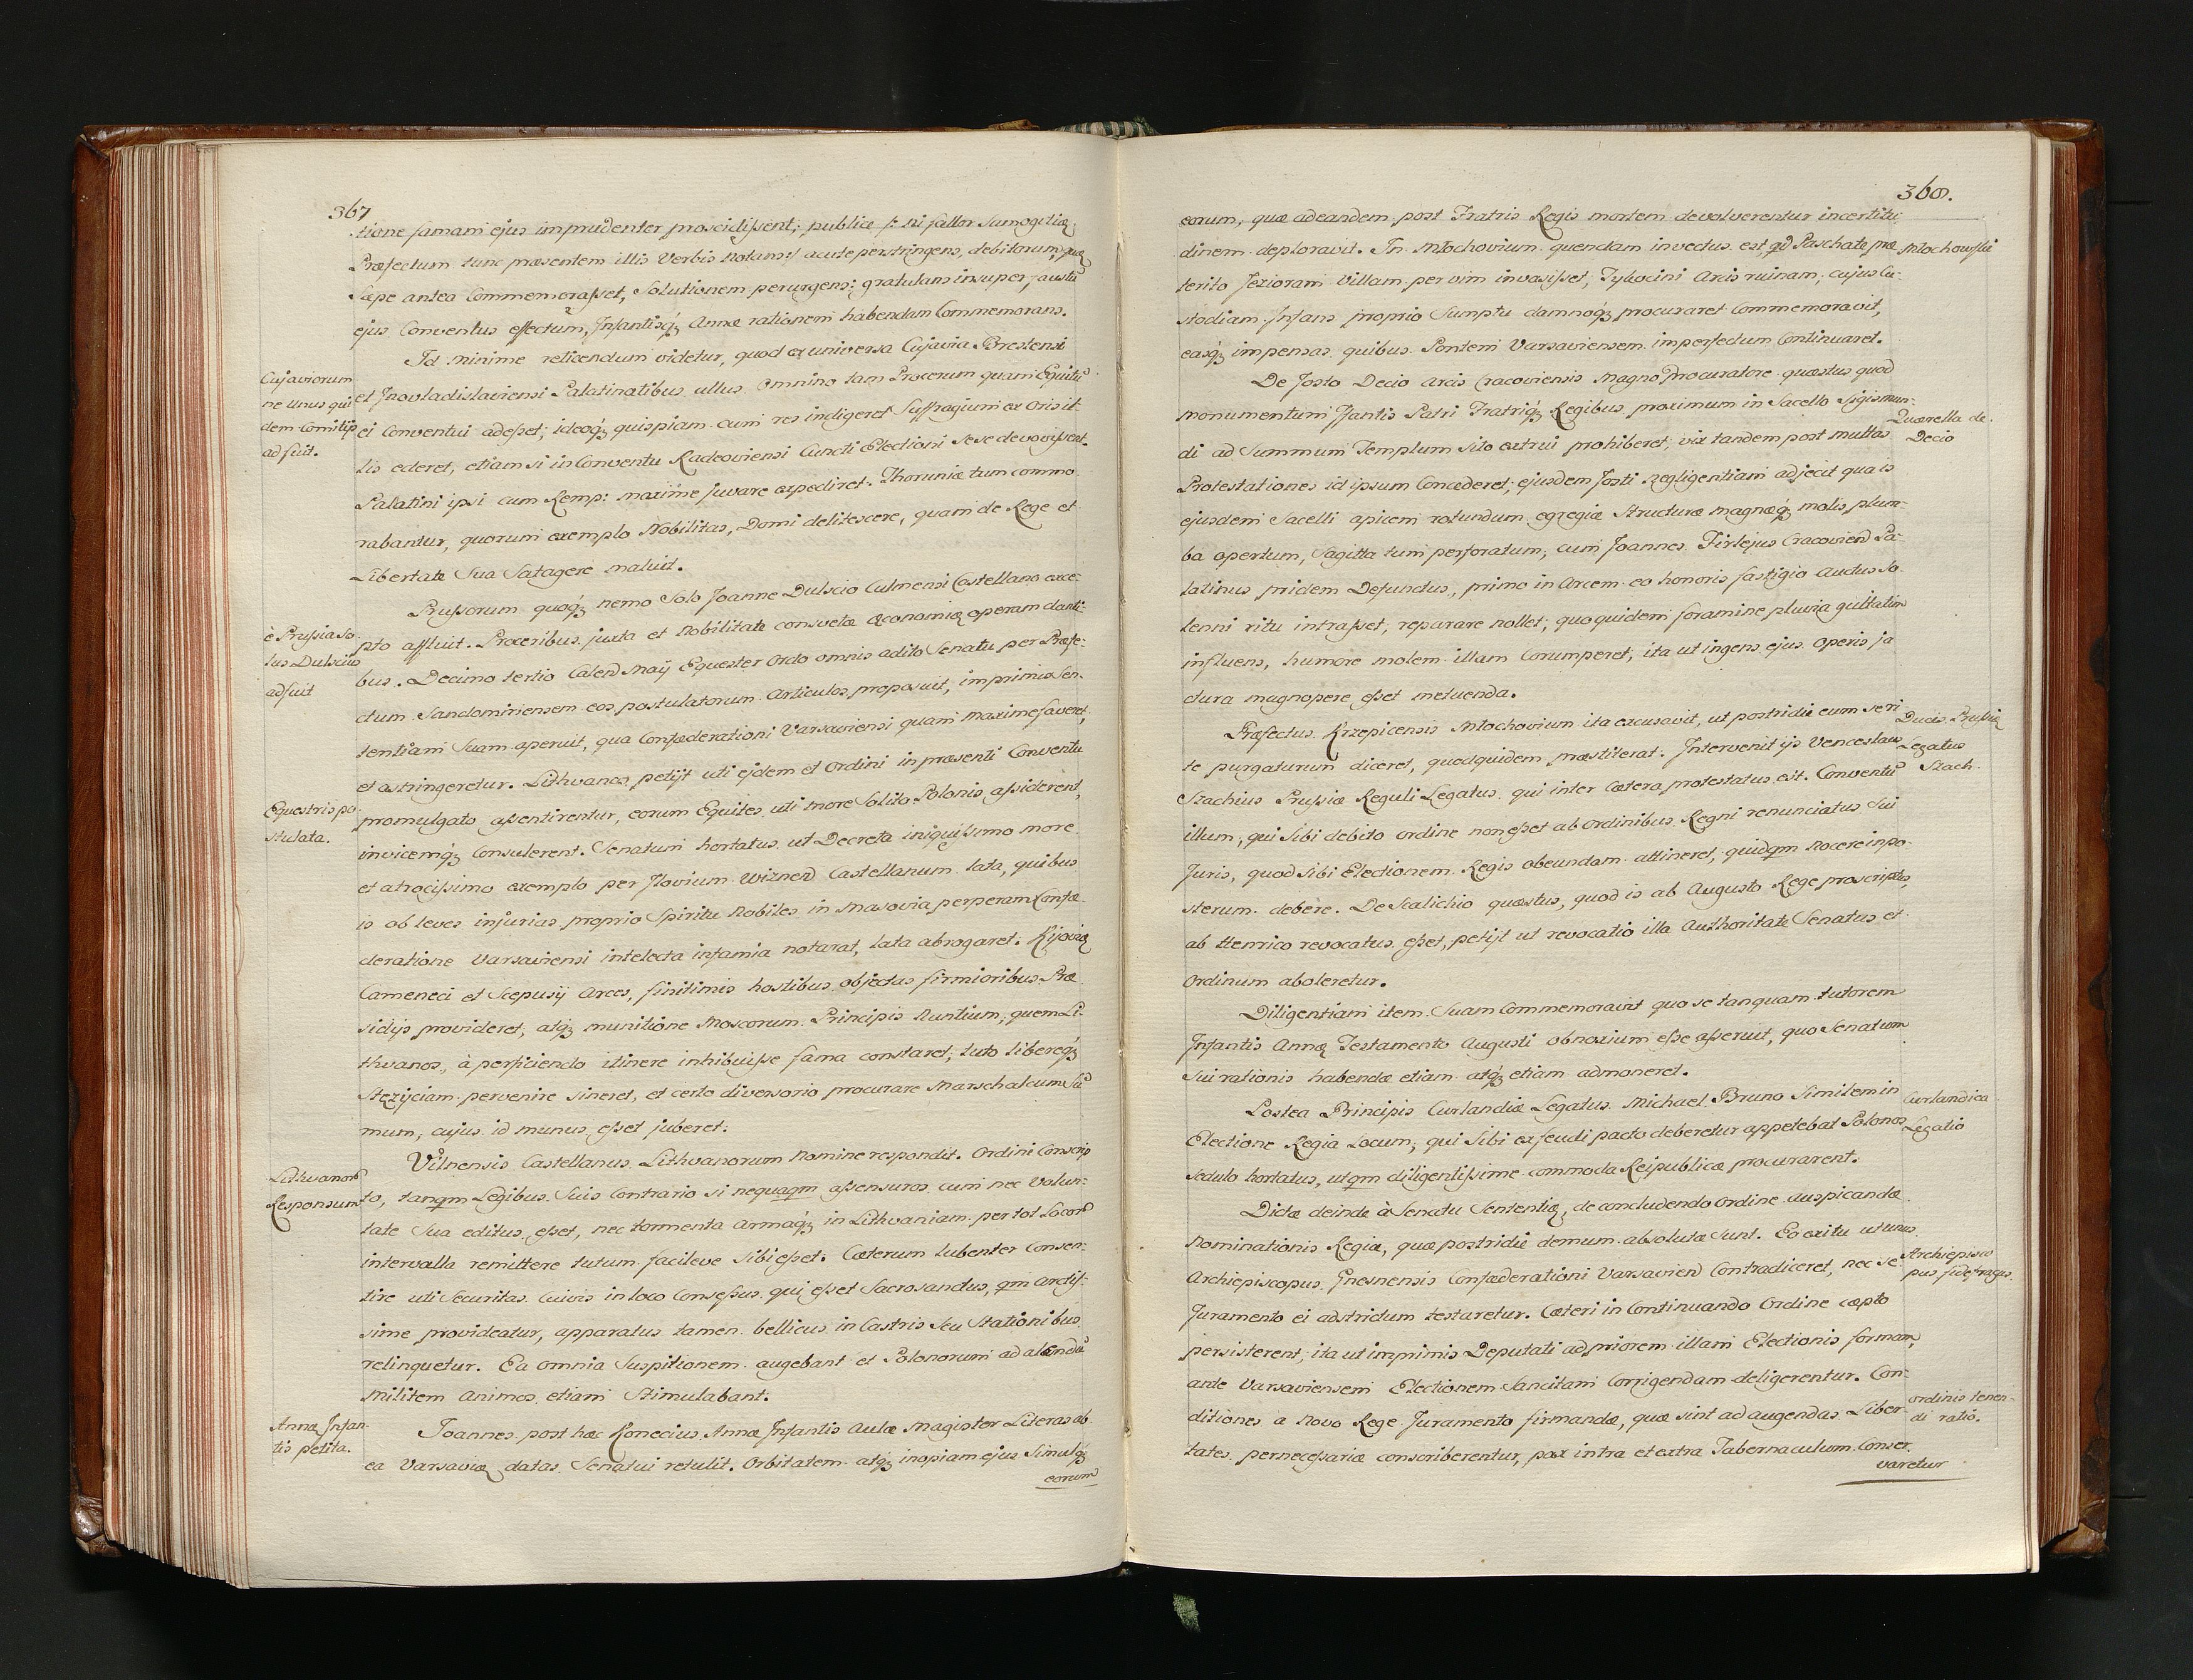 367
tione famam ejus imprudenter proscidissent; publice /: ni fallor Samogitiæ
Præfectum tunc præsentem illis Verbis notans :/ acute perstringens, debitorum, quæ
Sæpe antea Commemorasset, Solutionem perurgens: gratulans insuper, faustũ
ejus Conventus effectum, Infantisq́ꝫ Annæ rationem habendam Commemorans.
Id minime reticendum videtur, quod ex universa Cujavia Brestensi
Cujaviorum
ne unus qui
dem Comitijs
adfuit.
et Inovladislaviensi Palatinatibus ullus omnino tam Procerum quam Equitũ
ei Conventui adesset, ideoq́ꝫ quispiam cum res indigeret Suffragium ex Oris il-
lis ederet, etiam si in Conventu Radeoviensi Cuncti Electioni sese devovissent.
Palatini ipsi cum Remp: maxime juvare expediret. Thoruniæ tum commo
rabantur, quorum exemplo Nobilitas, Domi delitescere, quam de Rege et
Libertate Sua Satagere maluit.
Prussorum quoq́ꝫ nemo Solo Joanne Dulscio Culmensi Castellano exce-
è Prussia So
lus Dulscius
adfuit
pto affluit. Proceribus juxta et Nobilitate consvetæ Œconomiæ operam danti-
bus. Decimo tertio Calend Maij Equester Ordo omnis adito Senatu per Præfe-
ctum Sandomiriensem eos postulatorum Articulos proposuit, imprimis Sen-
tentiam Suam aperuit, qua Confæderationi Varsaviensi quam maxime faveret,
et astringeretur. Lithvanos petijt uti ejdem et Ordini in præsenti Conventu
Equestris po
stulata.
promulgato assentirentur, eorum Equites uti more Solito Polonis assiderent,
invicemq́ꝫ Consulerent. Senatum hortatus ut Decreta iniquissimo more
et atrocissimo exemplo per Ilovium Wiznen Castellanum lata, quibus
is ob leves injurias proprio Spiritu Nobiles in Masovia perperam Confæ-
deratione Varsaviensi intelecta infamia notarat, lata abrogaret. Kijoviæ
Cameneci et Scepusij Arces, finitimis hostibus objectas firmioribus Præ
sidijs provideret, atq́ꝫ munitione Moscorum Principis Nuntium, quem Li-
thvanos, à perficiendo itinere inhibuisse fama constaret, tuto libereq́ꝫ
Stezijciam pervenire sineret, et certo diversorio procurare Marschalcum Sũ
mum, cujus id munus esset juberet.
Vilnensis Castellanus Lithvanorum Nomine respondit. Ordini Conscrip
Lithvanorũ
Responsum
to, tanqm Legibus Suis Contrario si nequaqm assensuros cum nec Volun-
tate Sua editus esset, nec tormenta Armaq́ꝫ in Lithvaniam per tot Locorũ
intervalla remittere tutum facileve Sibi esset. Cæterum lubenter Consen-
tire uti Securitas Cuivis in loco Consessus qui esset Sacrosanctus, qm arctis-
sime provideatur, apparatus tamen bellicus in Castris Seu Stationibus
relinquetur. Ea omnia Suspitionem augebant et Polonorum ad alendũ
Militem Animos etiam Stimulabant.
Annæ Infan-
tis petita.
Joannes post hæc Konecius Annæ Infantis Aulæ Magister Literas ab
ea Varsaviæ datas Senatui retulit. Orbitatem atq́ꝫ inopiam ejus Simulq́ꝫ
eorum
368.
eorum, quæ adeandem post Fratris Regis mortem devolverentur incertitu
dinem deploravit. In Młochovium quendam invectus est, qd Paschate præ
Młochowski
terito Jezioram Villam per vim invasisset, Tykocini Arcis ruinam, cujus Cu-
stodiam Infans proprio Sumptu damnoq́ꝫ procuraret Commemoravit,
easq́ꝫ impensas quibus Pontem Varsaviensem imperfectum Continuaret.
De Josto Decio Arcis Cracoviensis Magno Procuratore quæstus quod
monumentum Ifantis Patri Fratriq́ꝫ Regibus proximum in Sacello Sigismun-
Quærella de
Decio
di ad Summum Templum Sito extrui prohiberet, vix tandem post multas
Protestationes id ipsum Concæderet, ejusdem Josti Negligentiam adjecit qua is
ejusdem Sacelli apicem rotundum egregiæ Structuræ magnæq́ꝫ molis plum-
ba opertum, Sagitta tum perforatum, cum Joannes Firlejus Cracovien Pa-
latinus pridem Defunctus, primo in Arcem eo honoris fastigio Auctus So
lenni ritu intrasset, reparare nollet, quo quidem foramine pluvia guttatim
influens, humore molem illam Corumperet, ita ut ingens ejus Operis ja
ctura magnopere esset metuenda.
Præfectus Krzepicensis Młochovium ita excusavit, ut postridie eum se ri
Ducis Prussiæ
Legatus
Szach
te purgaturum diceret, quod quidem præstiterat. Intervenit ijs Venceslaus
Szachius Prussiæ Reguli Legatus qui inter Cætera protestatus est. Conventũ
illum, qui Sibi debito Ordine non esset ab Ordinibus Regni renunciatus Sui
Juris, quod Sibi Electionem Regis obeundam attineret, quidqm Nocere inpo-
sterum debere. De Scalichio quæstus, quod is ab Augusto Rege proscriptus,
ab Henrico revocatus esset, petijt ut revocatio illa Authoritate Senatus et
Ordinum aboleretur.
Diligentiam item Suam Commemoravit quo se tanquam tutorem
Infantis Annæ Testamento Augusti obnoxium esse asseruit, quo Senatum
Sui rationis habendæ etiam atq́ꝫ etiam admoneret.
Postea Principis Curlandiæ Legatus Michael Bruno Similem in
Curlandica
Legatio
Electione Regia Locum, qui Sibi ex feudi pacto deberetur appetebat Polonos
sedulo hortatus, utqm diligentissime commoda Reipublicæ procurarent.
Dictæ deinde à Senatu Sententiæ, de concludendo Ordine Auspicandæ
Nominationis Regiæ, quæ postridie demum absolutæ Sunt. Eo exitu ut unus
Archiepisco
pus fidefragus
Archiepiscopus Gnesnensis Confæderationi Varsavien Contradiceret, nec se
Juramento ei adstrictum testaretur. Cæteri in Continuando Ordine cæpto
persisterent, ita ut imprimis Deputati ad priorem illam Electionis formam,
ante Varsaviensem Electionem Sancitam Corrigendam deligerentur. Con-
ordinis tenen-
di ratio.
ditiones a Novo Rege Juramento firmandæ, quæ sint ad augendas Liber-
tates pernecessariæ conscriberentur, pax intra et extra Tabernaculum Conser-
varetur